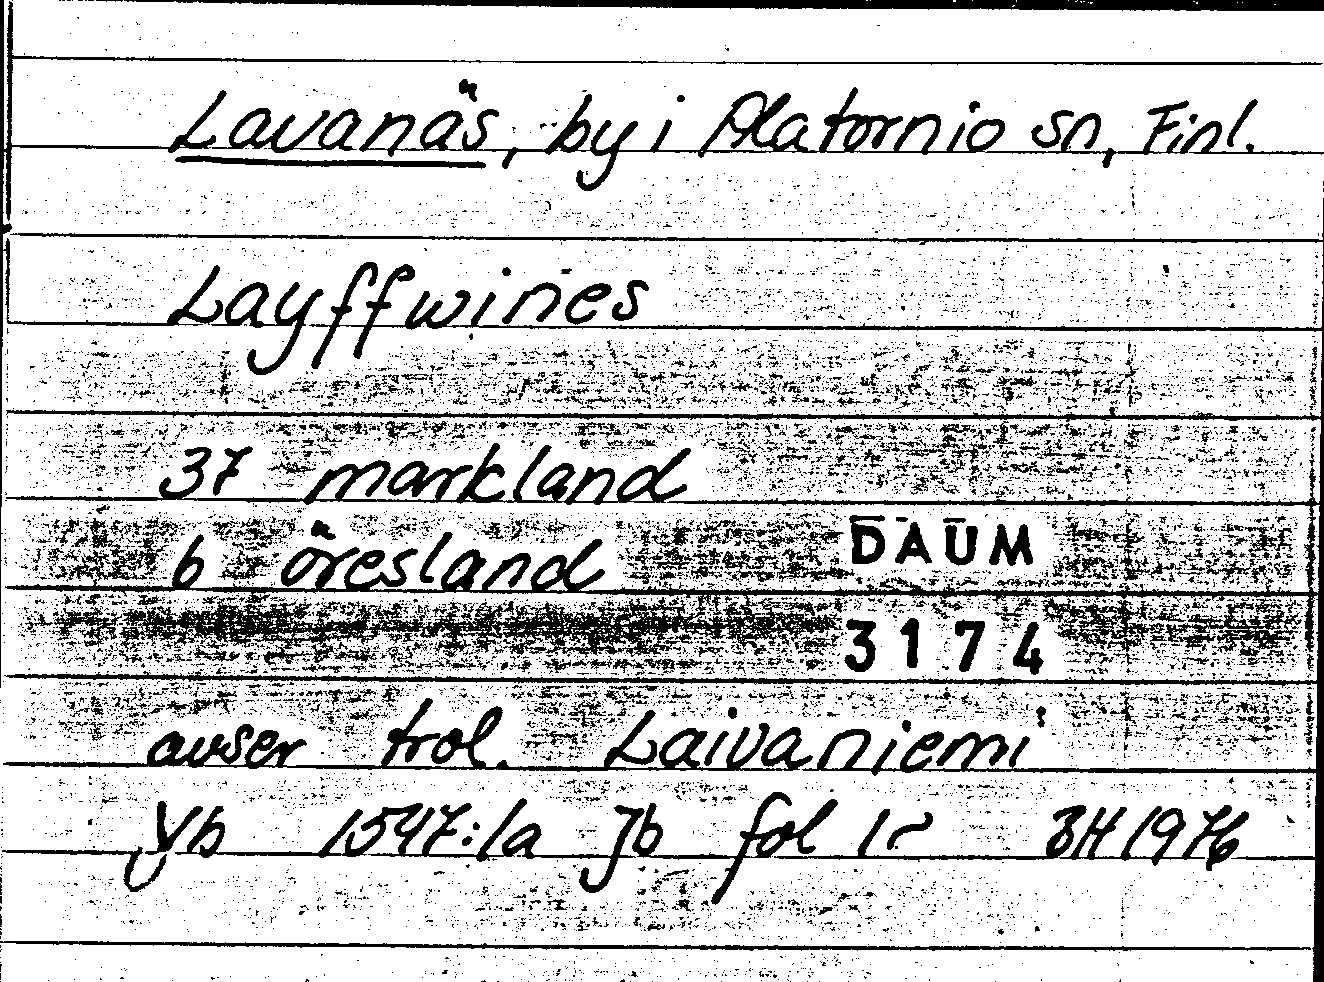 Lavanäs, by i Alatornio sn, Finl.
Layffwines
37 markland
6 öresland
DAUM
3174
avser trol. Laivaniemi
Vb 1547:1a Jb fol 1r BH 1976